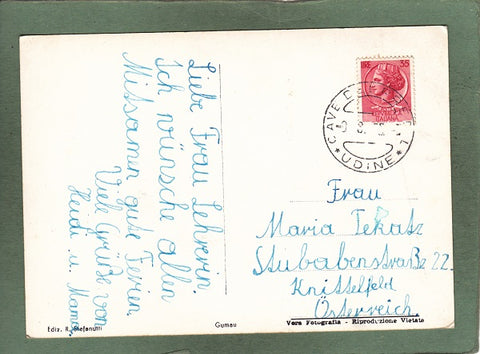 Liebe Frau Lehrerin.
Ich wünsche allen
Mitsamen gute Ferien
Viele Grüße von
Heidi u. Mama.
35
ITALIANA
CAVE DEL
UDINE
Frau
Maria Tekatz
Stubabenstraße 22.
Knittelfeld
Österreich.
Ediz. R. Stefanutti
Gumau
Vera Fotografia - Riproduzione Vietata